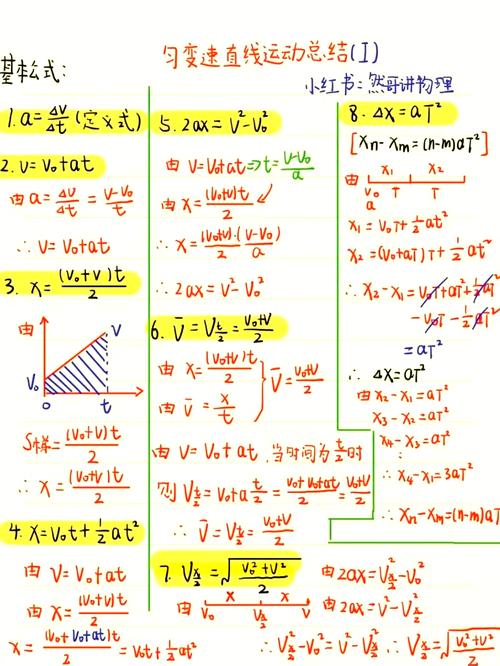 匀变速直线运动总结(I)
小红书:然哥讲物理
基本公式:
1. a = Δv/Δt (定义式)
2. v = v₀ + at
由 a = Δv/Δt = (v-v₀)/t
∴ v = v₀ + at
3. x = (v₀+v)t/2
由
v
v₀
0 t
S梯 = (v₀+v)t/2
∴ x = (v₀+v)t/2
4. x = v₀t + 1/2 at²
由 v = v₀ + at
由 x = (v₀+v)t/2
x = (v₀+v₀+at)t/2 = v₀t + 1/2 at²
5. 2ax = v² - v₀²
由 v = v₀ + at ⇒ t = (v-v₀)/a
由 x = (v₀+v)t/2
∴ x = (v₀+v)/2 · (v-v₀)/a
∴ 2ax = v² - v₀²
6. v̄ = v_{t/2} = (v₀+v)/2
由 x = (v₀+v)t/2
由 v̄ = x/t
} v̄ = (v₀+v)/2
由 v = v₀ + at, 当时间为 t/2 时
则 v_{t/2} = v₀ + a t/2 = (v₀+v₀+at)/2 = (v₀+v)/2
∴ v̄ = v_{t/2} = (v₀+v)/2
7. v_{x/2} = √((v₀²+v²)/2)
由 x x
v₀ v_{x/2} v
由 2ax = v²_{x/2} - v₀²
由 2ax = v² - v²_{x/2}
∴ v²_{x/2} - v₀² = v² - v²_{x/2} ∴ v_{x/2} = √((v₀²+v²)/2)
8. Δx = aT²
[xn - xm = (n-m)aT²]
由 x₁ x₂
v₀ T T
a
x₁ = v₀T + 1/2 aT²
x₂ = (v₀+aT)T + 1/2 aT²
∴ x₂ - x₁ = v₀T + aT² + 1/2 aT²
- v₀T - 1/2 aT²
= aT²
∴ Δx = aT²
由 x₂ - x₁ = aT²
x₃ - x₂ = aT²
x₄ - x₃ = aT²
∴ x₄ - x₁ = 3aT²
∴ xn - xm = (n-m)aT²